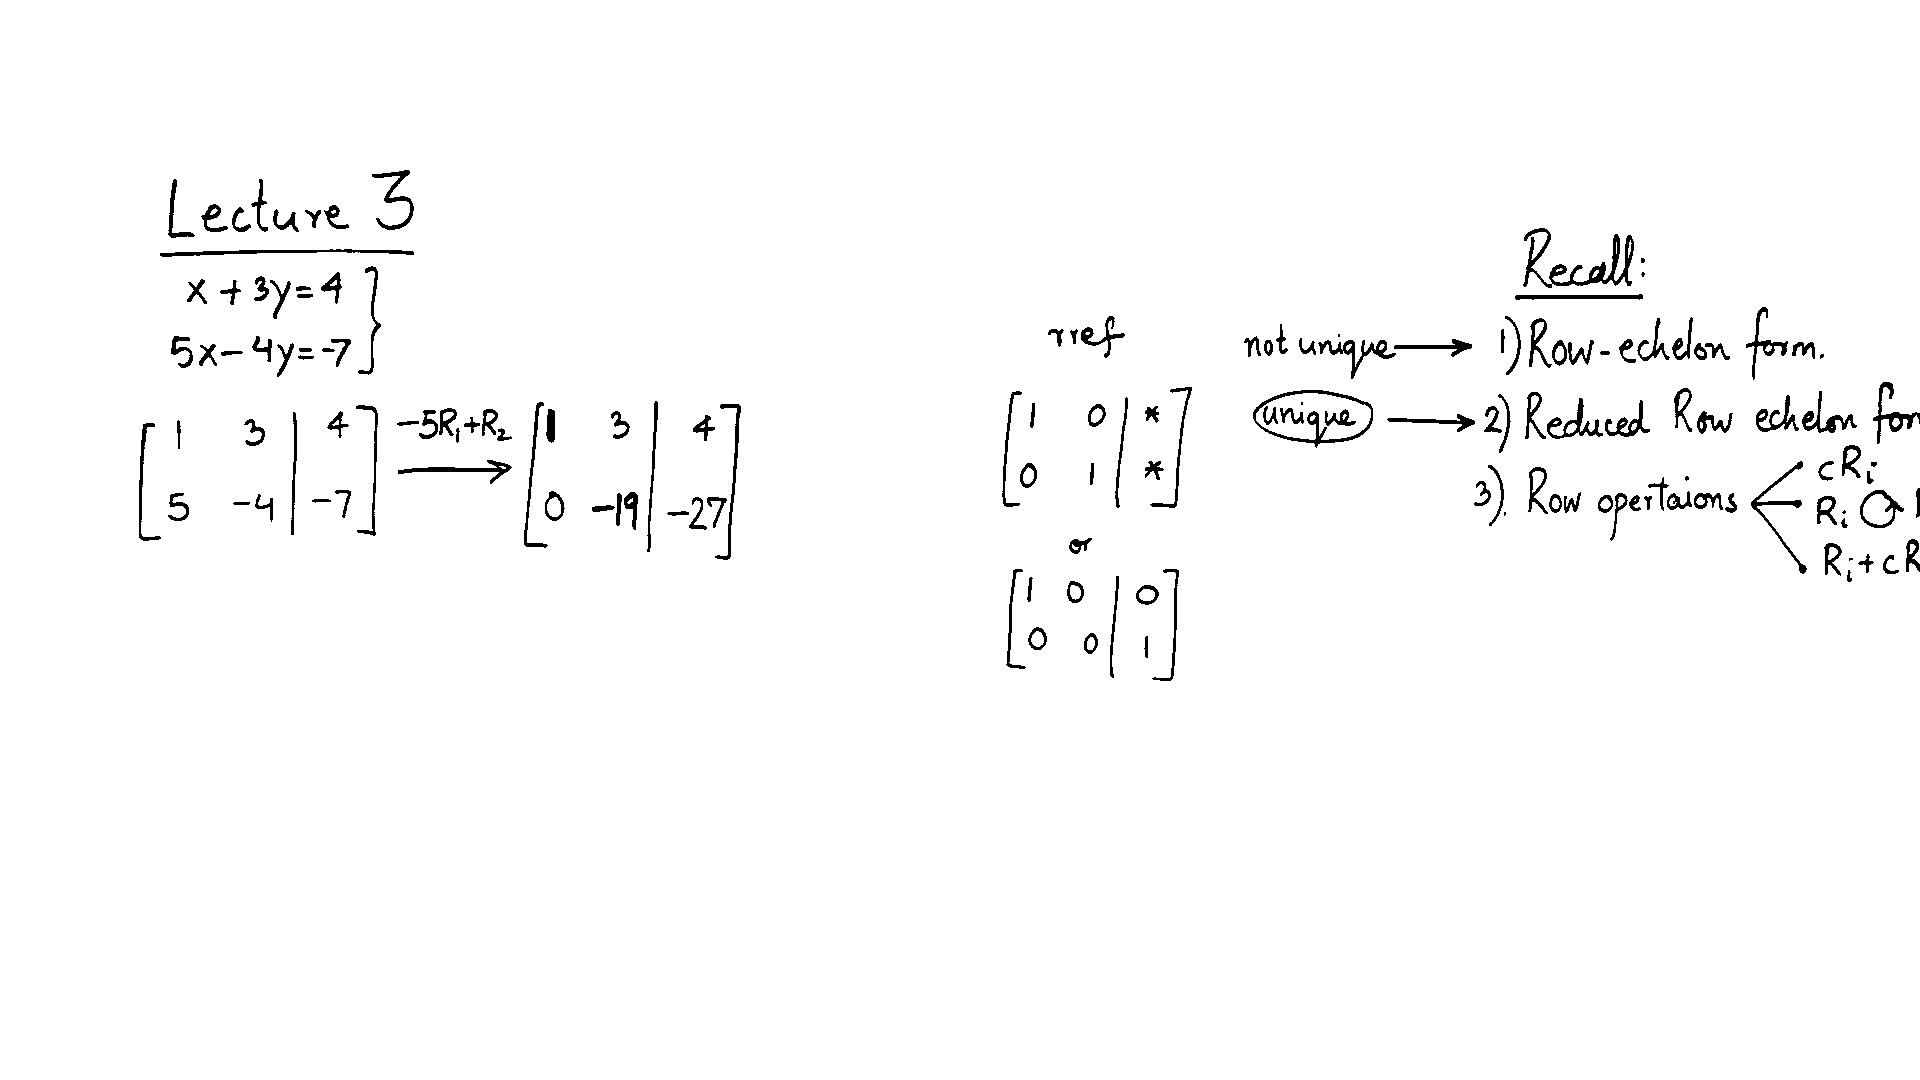 Lecture 3
x + 3y = 4
5x - 4y = -7
[ 1 3 | 4 ] -5R₁+R₂ [ 1 3 | 4 ]
[ 5 -4 | -7 ] ⟶ [ 0 -19 | -27 ]
rref
[ 1 0 | * ]
[ 0 1 | * ]
or
[ 1 0 | 0 ]
[ 0 0 | 1 ]
Recall:
not unique ⟶ 1) Row-echelon form.
unique ⟶ 2) Reduced Row echelon for
3). Row opertaions
cRᵢ
Rᵢ
Rᵢ + cR